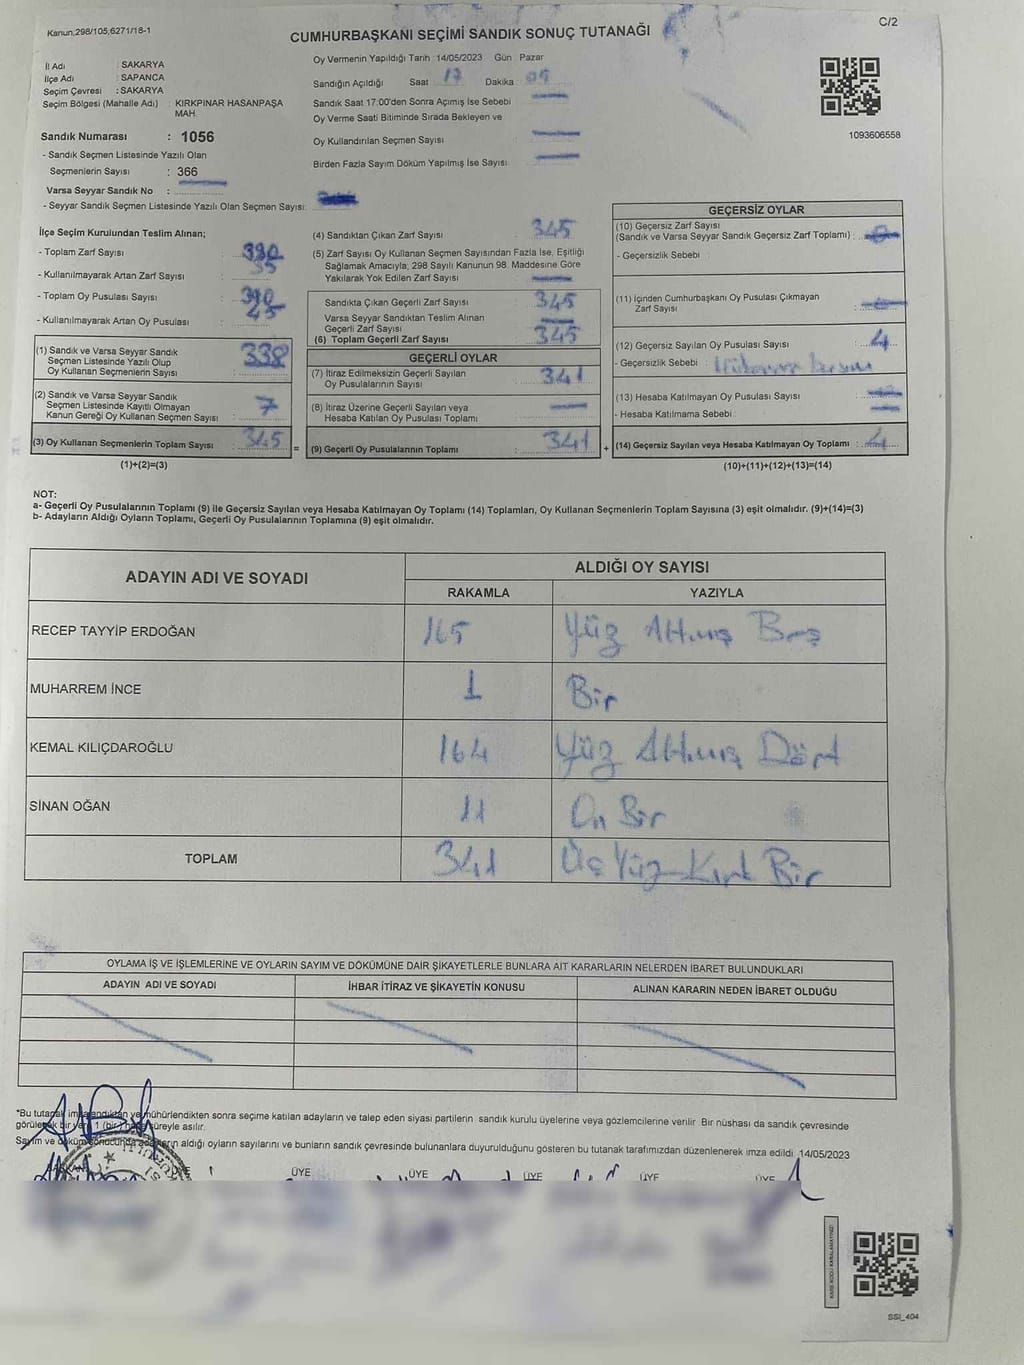 Kanun.298/105,6271/18-1
C/2
CUMHURBAŞKANI SEÇİMİ SANDIK SONUÇ TUTANAĞI
İl Adı : SAKARYA
İlçe Adı : SAPANCA
Seçim Çevresi : SAKARYA
Seçim Bölgesi (Mahalle Adı) : KIRKPINAR HASANPAŞA
MAH.
Sandık Numarası : 1056
- Sandık Seçmen Listesinde Yazılı Olan
Seçmenlerin Sayısı : 366
Varsa Seyyar Sandık No :
- Seyyar Sandık Seçmen Listesinde Yazılı Olan Seçmen Sayısı:
Oy Vermenin Yapıldığı Tarih 14/05/2023 Gün Pazar
Sandığın Açıldığı Saat 17 Dakika
Sandık Saat 17:00'den Sonra Açımış İse Sebebi
Oy Verme Saati Bitiminde Sırada Bekleyen ve
Oy Kullandırılan Seçmen Sayısı
Birden Fazla Sayım Döküm Yapılmış İse Sayısı
1093606558
İlçe Seçim Kurulundan Teslim Alınan;
- Toplam Zarf Sayısı : 390
- Kullanılmayarak Artan Zarf Sayısı : 35
- Toplam Oy Pusulası Sayısı : 390
- Kullanılmayarak Artan Oy Pusulası : 45
(1) Sandık ve Varsa Seyyar Sandık
Seçmen Listesinde Yazılı Olup
Oy Kullanan Seçmenlerin Sayısı : 338
(2) Sandık ve Varsa Seyyar Sandık
Seçmen Listesinde Kayıtlı Olmayan
Kanun Gereği Oy Kullanan Seçmen Sayısı : 7
(3) Oy Kullanan Seçmenlerin Toplam Sayısı : 345 =
(1)+(2)=(3)
(4) Sandıktan Çıkan Zarf Sayısı : 345
(5) Zarf Sayısı Oy Kullanan Seçmen Sayısından Fazla İse, Eşitliği
Sağlamak Amacıyla, 298 Sayılı Kanunun 98. Maddesine Göre
Yakılarak Yok Edilen Zarf Sayısı :
Sandıkta Çıkan Geçerli Zarf Sayısı : 345
Varsa Seyyar Sandıktan Teslim Alınan
Geçerli Zarf Sayısı :
(6) Toplam Geçerli Zarf Sayısı : 345
GEÇERLİ OYLAR
(7) İtiraz Edilmeksizin Geçerli Sayılan
Oy Pusulalarının Sayısı : 341
(8) İtiraz Üzerine Geçerli Sayılan veya
Hesaba Katılan Oy Pusulası Toplamı :
(9) Geçerli Oy Pusulalarının Toplamı : 341 +
GEÇERSİZ OYLAR
(10) Geçersiz Zarf Sayısı
(Sandık ve Varsa Seyyar Sandık Geçersiz Zarf Toplamı) :
- Geçersizlik Sebebi :
(11) İçinden Cumhurbaşkanı Oy Pusulası Çıkmayan
Zarf Sayısı :
(12) Geçersiz Sayılan Oy Pusulası Sayısı : 4
- Geçersizlik Sebebi :
(13) Hesaba Katılmayan Oy Pusulası Sayısı :
- Hesaba Katılmama Sebebi :
(14) Geçersiz Sayılan veya Hesaba Katılmayan Oy Toplamı : 4
(10)+(11)+(12)+(13)=(14)
NOT:
a- Geçerli Oy Pusulalarının Toplamı (9) ile Geçersiz Sayılan veya Hesaba Katılmayan Oy Toplamı (14) Toplamları, Oy Kullanan Seçmenlerin Toplam Sayısına (3) eşit olmalıdır. (9)+(14)=(3)
b- Adayların Aldığı Oyların Toplamı, Geçerli Oy Pusulalarının Toplamına (9) eşit olmalıdır.
ADAYIN ADI VE SOYADI
ALDIĞI OY SAYISI
RAKAMLA YAZIYLA
RECEP TAYYİP ERDOĞAN 165 Yüz Altmış Beş
MUHARREM İNCE 1 Bir
KEMAL KILIÇDAROĞLU 164 Yüz Altmış Dört
SİNAN OĞAN 11 On Bir
TOPLAM 341 Üç Yüz Kırk Bir
OYLAMA İŞ VE İŞLEMLERİNE VE OYLARIN SAYIM VE DÖKÜMÜNE DAİR ŞİKAYETLERLE BUNLARA AİT KARARLARIN NELERDEN İBARET BULUNDUKLARI
ADAYIN ADI VE SOYADI İHBAR İTİRAZ VE ŞİKAYETİN KONUSU ALINAN KARARIN NEDEN İBARET OLDUĞU
*Bu tutanak imzalandıktan ve mühürlendikten sonra seçime katılan adayların ve talep eden siyasi partilerin sandık kurulu üyelerine veya gözlemcilerine verilir Bir nüshası da sandık çevresinde
görülecek bir yere 1 (bir) hafta süreyle asılır.
Sayım ve döküm sonucunda adayların aldığı oyların sayılarını ve bunların sandık çevresinde bulunanlara duyurulduğunu gösteren bu tutanak tarafımızdan düzenlenerek imza edildi. 14/05/2023
BAŞKAN ÜYE ÜYE ÜYE ÜYE ÜYE
SSI_404